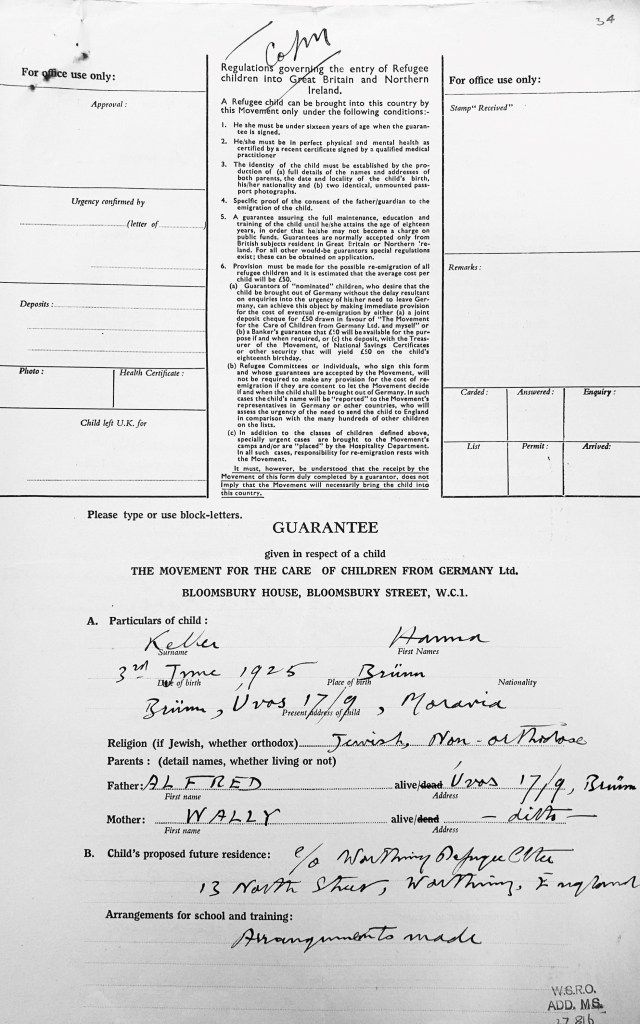 34
Copy
For office use only:
Approval:
Urgency confirmed by
(letter of
)
Deposits:
Photo:
Health Certificate:
Child left U.K. for
Regulations governing the entry of Refugee
children into Great Britain and Northern
Ireland.
A Refugee child can be brought into this country by
this Movement only under the following conditions:-
1. He she must be under sixteen years of age when the guaran-
tee is signed.
2. He/she must be in perfect physical and mental health as
certified by a recent certificate signed by a qualified medical
practitioner
3. The identity of the child must be established by the pro-
duction of (a) full details of the names and addresses of
both parents, the date and locality of the child's birth,
his/her nationality and (b) two identical, unmounted pass-
port photographs.
4. Specific proof of the consent of the father/guardian to the
emigration of the child.
5. A guarantee assuring the full maintenance, education and
training of the child until he/she attains the age of eighteen
years, in order that he/she may not become a charge on
public funds. Guarantees are normally accepted only from
British subjects resident in Great Britain or Northern 're-
land. For all other would-be guarantors special regulations
exist; these can be obtained on application.
6. Provision must be made for the possible re-emigration of all
refugee children and it is estimated that the average cost per
child will be £50.
(a) Guarantors of "nominated" children, who desire that the
child be brought out of Germany without the delay resultant
on enquiries into the urgency of his/her need to leave Ger-
many, can achieve this object by making immediate provision
for the cost of eventual re-emigration by either (a) a joint
deposit cheque for £50 drawn in favour of "The Movement
for the Care of Children from Germany Ltd. and myself" or
(b) a Banker's guarantee that £50 will be available for the pur-
pose if and when required, or (c) the deposit, with the Treas-
urer of the Movement, of National Savings Certificates
or other security that will yield £50 on the child's
eighteenth birthday.
(b) Refugee Committees or individuals, who sign this form
and whose guarantees are accepted by the Movement, will
not be required to make any provision for the cost of re-
emigration if they are content to let the Movement decide
if and when the child shall be brought out of Germany. In such
cases the child's name will be "reported" to the Movement's
representatives in Germany or other countries, who will
assess the urgency of the need to send the child to England
in comparison with the many hundreds of other children
on the lists.
(c) In addition to the classes of children defined above,
specially urgent cases are brought to the Movement's
camps and/or are "placed" by the Hospitality Department.
In all such cases, responsibility for re-emigration rests with
the Movement.
It must, however, be understood that the receipt by the
Movement of this form duly completed by a guarantor, does not
imply that the Movement will necessarily bring the child into
this country.
For office use only:
Stamp "Received"
Remarks:
Carded: Answered: Enquiry:
List Permit: Arrived:
Please type or use block-letters.
GUARANTEE
given in respect of a child
THE MOVEMENT FOR THE CARE OF CHILDREN FROM GERMANY Ltd.
BLOOMSBURY HOUSE, BLOOMSBURY STREET, W.C.1.
A. Particulars of child:
Keller Hanna
Surname First Names
3rd June 1925 Brünn
Date of birth Place of birth Nationality
Brünn, Úvos 17/9, Moravia
Present address of child
Religion (if Jewish, whether orthodox) Jewish, Non-orthodose
Parents: (detail names, whether living or not)
Father: ALFRED alive/dead Úvos 17/9, Brünn
First name Address
Mother: WALLY alive/dead - ditto -
First name Address
B. Child's proposed future residence: c/o Worthing Refugee Cttee
13 North Street, Worthing, England
Arrangements for school and training:
Arrangements made
W.S.R.O.
ADD. MS.
27,816